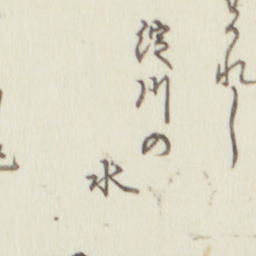 うれし
淀川の
水